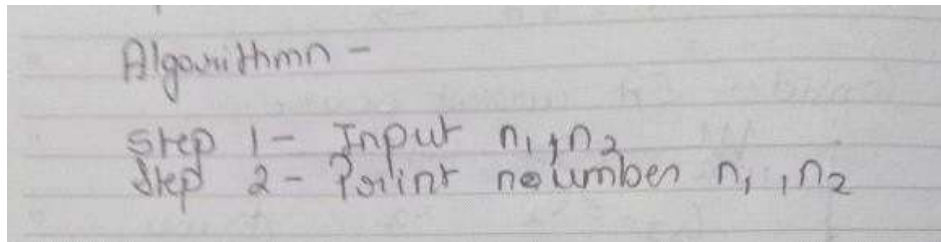 Algorithmn -
Step 1 - Input n1, n2
Step 2 - Print noumber n1, n2